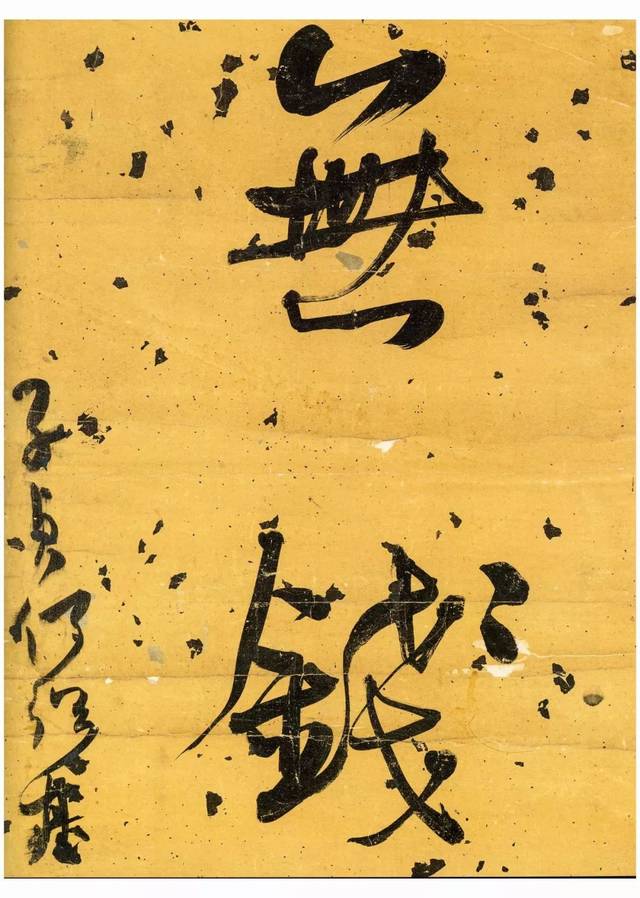 無錢
子貞何紹基